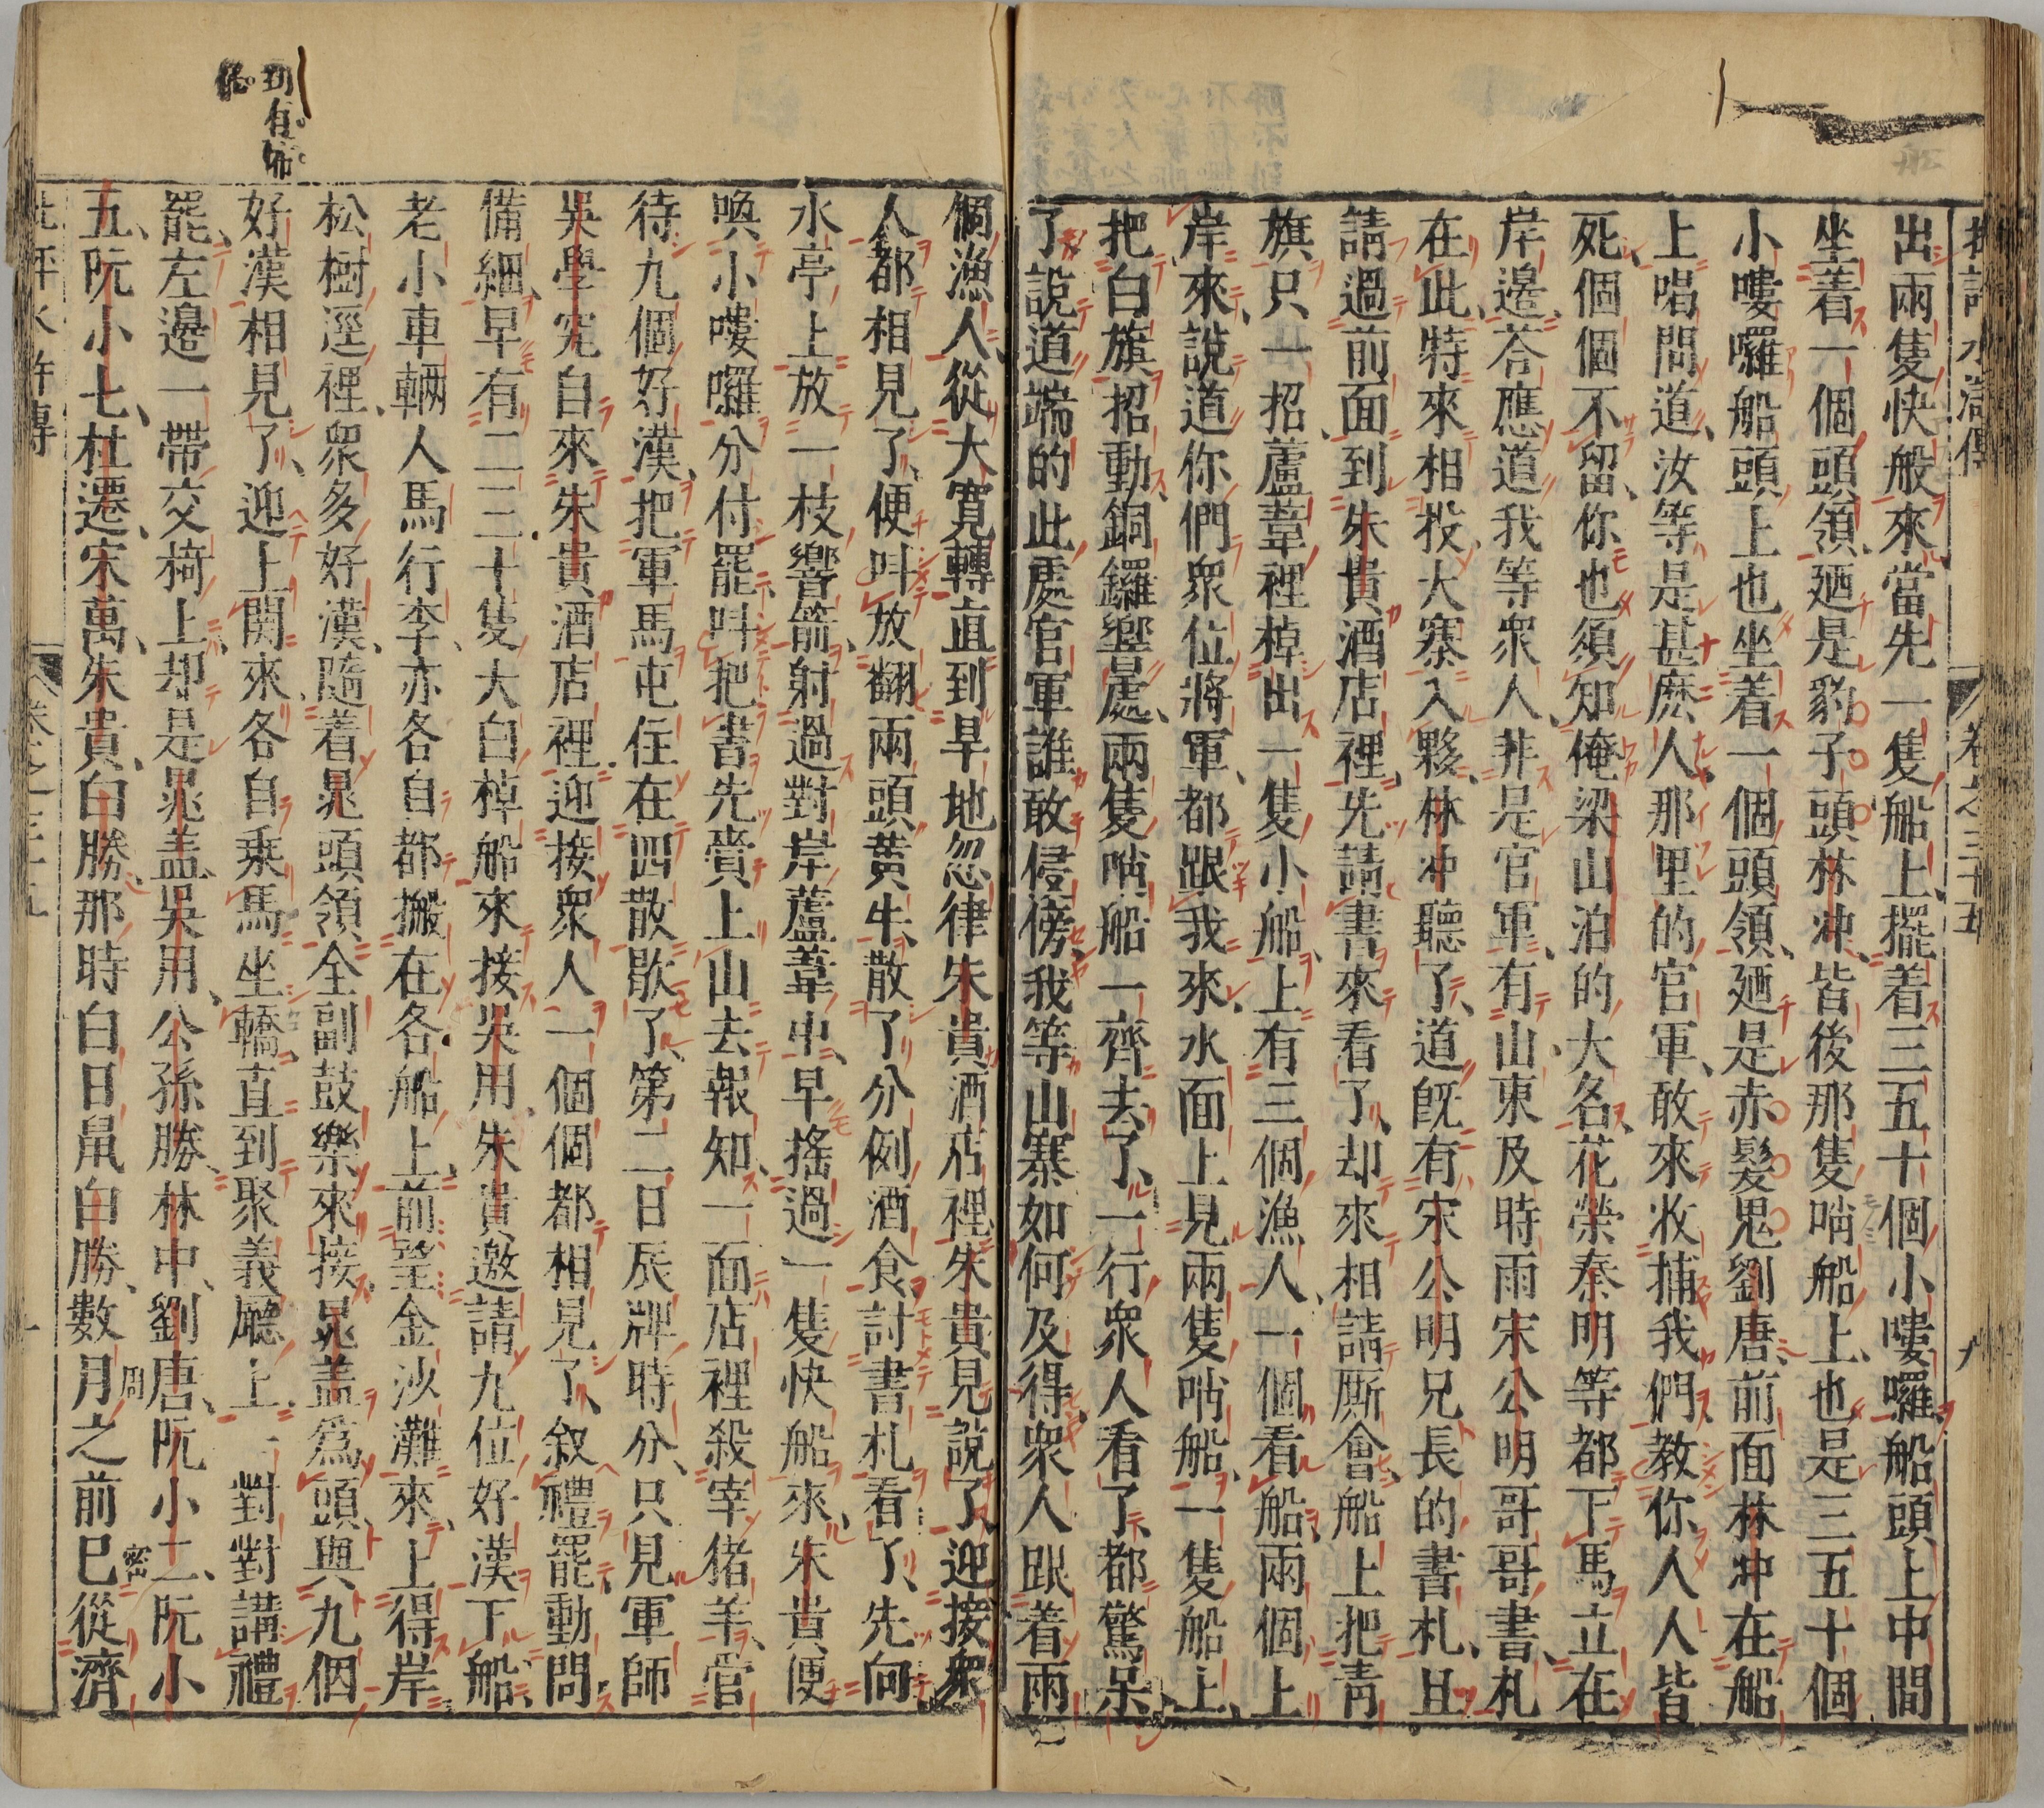 批評水滸傳
卷之三十五
九
出兩隻快船來當先一隻船上擺着三五十個小嘍囉船頭上中間
坐着一個頭領廼是豹子頭林冲皆後那隻哨船上也是三五十個
小嘍囉船頭上也坐着一個頭領廼是赤髮鬼劉唐前面林冲在船
上唱問道汝等是甚麽人那里的官軍敢來收捕我們教你人人皆
死個個不留你也須知俺梁山泊的大名花榮秦明等都下馬立在
岸邊荅應道我等衆人非是官軍有山東及時雨宋公明哥哥書札
在此特來相投大寨入夥林冲聽了道旣有宋公明兄長的書札且
請過前面到朱貴酒店裡先請書來看了却來相請厮會船上把靑
旗只一招蘆葦裡棹出一隻小船上有三個漁人一個看船兩個上
岸來說道你們衆位將軍都跟我來水面上見兩隻哨船一隻船上
把白旗招動銅鑼響處兩隻哨船一齊去了一行衆人看了都驚呆
了說道端的此處官軍誰敢侵傍我等山寨如何及得衆人跟着兩
個漁人從大寛轉直到旱地忽律朱貴酒店裡朱貴見說了迎接衆
人都相見了便叫放翻兩頭黄牛散了分例酒食討書札看了先向
水亭上放一枝響箭射過對岸蘆葦中早搖過一隻快船來朱貴便
喚小嘍囉分付罷叫把書先賫上山去報知一面店裡殺宰猪羊管
待九個好漢把軍馬屯住在四散歇了第二日辰牌時分只見軍師
吳學究自來朱貴酒店裡迎接衆人一個個都相見了叙禮罷動問
備細早有二三十隻大白棹船來接吳用朱貴邀請九位好漢下船
老小車輛人馬行李亦各自都搬在各船上前望金沙灘來上得岸
松樹逕裡衆多好漢隨着晁頭領全副鼓樂來接晁盖爲頭與九個
好漢相見了迎上関來各自乘馬坐轎直到聚義廳上一對對講禮
罷左邊一帶交椅上却是晁盖吳用公孫勝林冲劉唐阮小二阮小
五阮小七杜遷宋萬朱貴白勝那時白日鼠白勝數月之前已從濟
周
密
到有始
批評水滸傳
卷之三十五